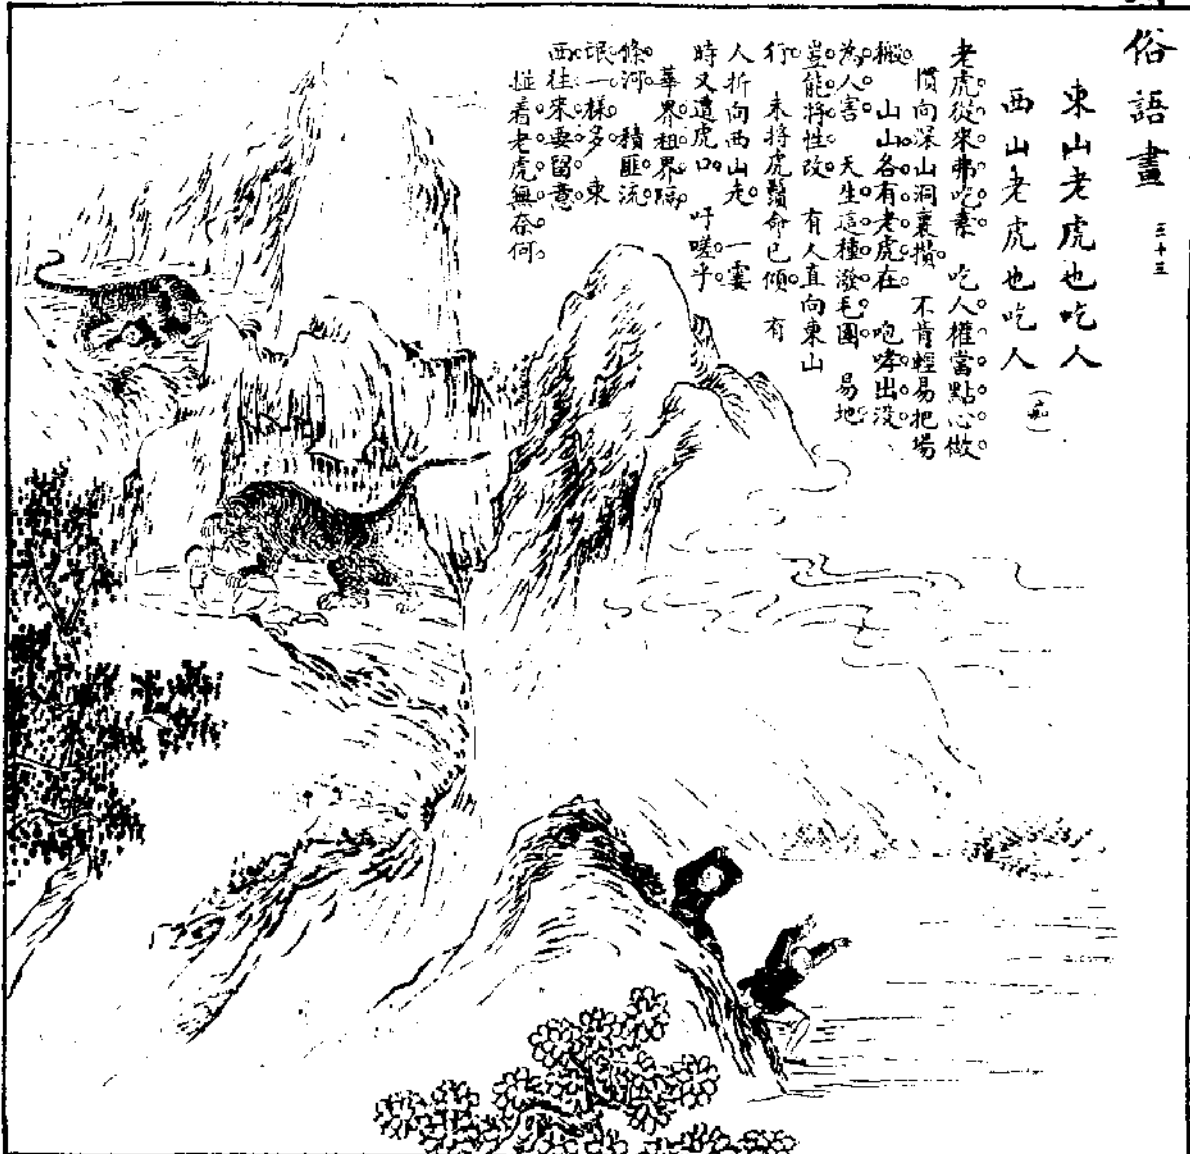 俗語畫 三十三
東山老虎也吃人
西山老虎也吃人
老虎從來弗吃素。 吃人權當點心做。
慣向深山洞裏攢。 不肯輕易把場
搬。 山山各有老虎在。 咆哮出沒
為人害。 天生這種潑毛團。 易地
豈能將性改。 有人直向東山
行。 未將虎鬚命已傾。 有
人折向西山走。 一霎
時又遭虎口。 吁嗟乎。
華界租界隔
條河。 積匪流
氓一樣多。 東
西往來要留意。
掽着老虎無奈何。